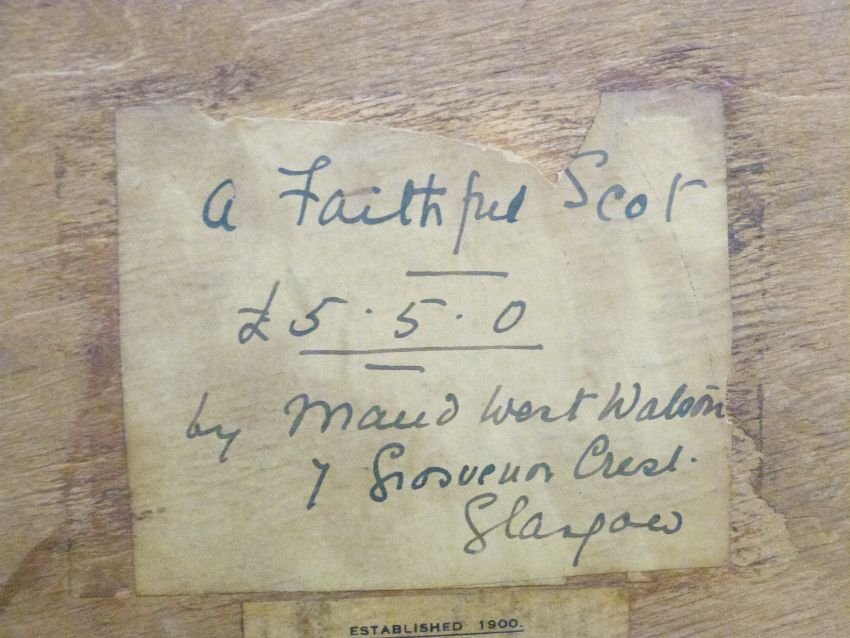 a Faithful Scot
£5.5.0
by Maud West Watson
7 Grosvenor Crest.
Glasgow
ESTABLISHED 1900.